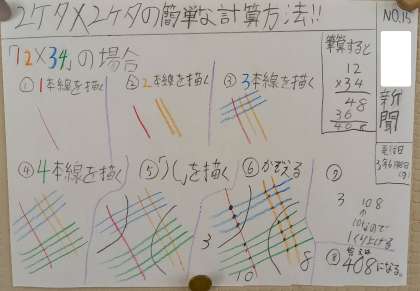 2ケタ×2ケタの簡単な計算方法!!
NO.15
「12×34」の場合
筆算すると
12
×34
48
36
408
新聞
①1本線を描く
②2本線を描く
③3本線を描く
④4本線を描く
⑤「ノし」を描く
⑥かぞえる
3
10
8
⑦
3 10 8
10なので
1くり上げる
⑧答えは
408になる。